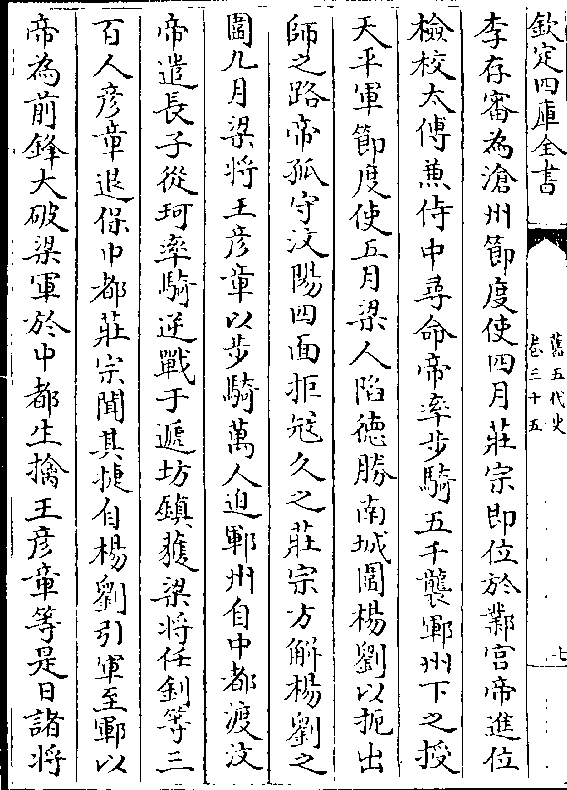 欽定四庫全書
舊五代史
卷三十五
七
李存審為滄州節度使四月莊宗即位於鄴宫帝進位
檢校太傅兼侍中尋命帝率步騎五千襲鄆州下之授
天平軍節度使五月梁人陷德勝南城圍楊劉以扼出
師之路帝孤守汶陽四面拒冦久之莊宗方解楊劉之
圍九月梁将王彦章以步騎萬人迫鄆州自中都渡汶
帝遣長子從珂率騎逆戰于遞坊鎮獲梁将任釗等三
百人彦章退保中都莊宗聞其捷自楊劉引軍至鄆以
帝為前鋒大破梁軍於中都生擒王彦章等是日諸將